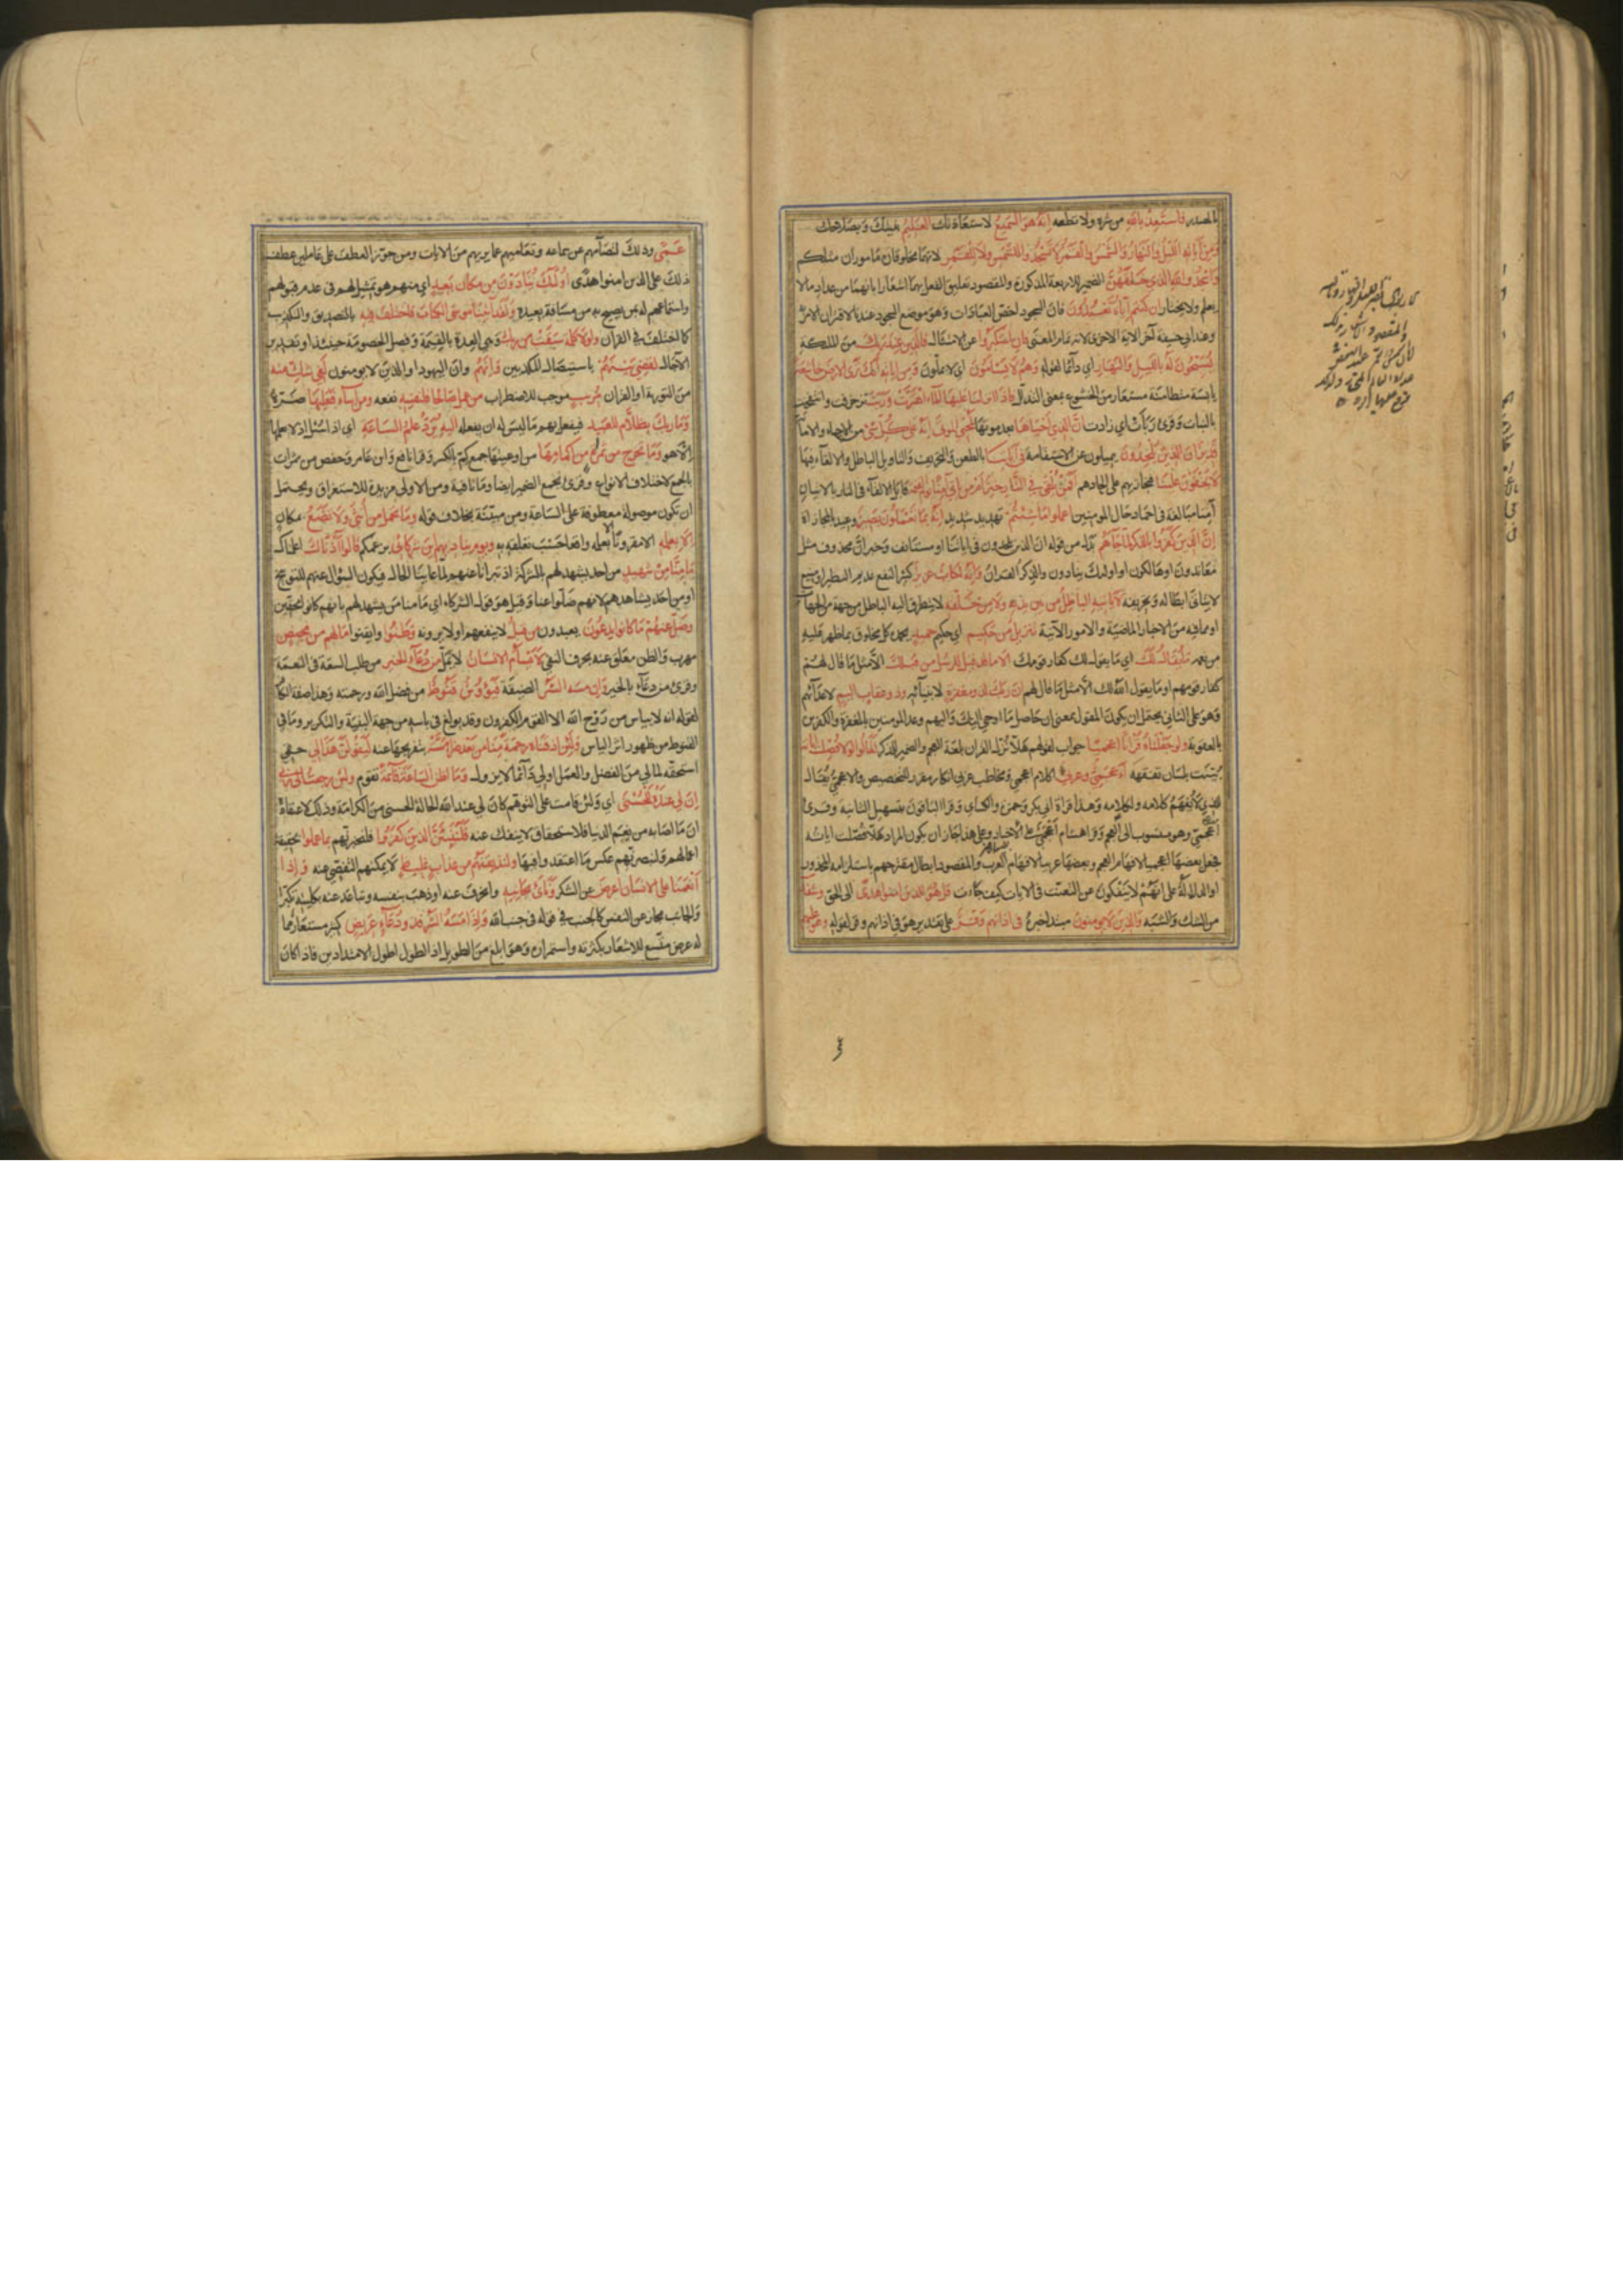 للمصدر فاستعذ بالله من شره ولا تطعه انه هو السميع لاستعاذتك العليم بنيتك وبصلاحك
ومن آياته الليل والنهار والشمس والقمر لا تسجدوا للشمس ولا للقمر لانهما مخلوقان مأموران مثلكم
واسجدوا لله الذي خلقهن الضمير للاربعة المذكورة والمقصود تعليق الفعل بهما اشعارا بانهما من عداد ما لا
يعلم ولا يختار ان كنتم اياه تعبدون فان السجود اخص العبادات وهو موضع السجود عندنا لاقتران الامر به
وعند ابي حنيفة آخر الآية الاخرى لانه تمام المعنى فان استكبروا عن الامتثال فالذين عند ربك من الملئكة
يسبحون له بالليل والنهار اي دائما لقوله وهم لا يسأمون اي لا يملون ومن اياته انك ترى الارض خاشعة
يابسة متطامنة مستعار من الخشوع بمعنى التذلل فاذا انزلنا عليها الماء اهتزت وربت تزخرفت وانتفخت
بالنبات وقرئ ربأت اي زادت ان الذي احياها بعد موتها لمحيي الموتى انه على كل شئ من الاحياء والاماتة
قدير ان الذين يلحدون يميلون عن الاستقامة في آياتنا بالطعن والتحريف والتاويل الباطل والالغاء فيها
لا يخفون علينا فنجازيهم على الحادهم افمن يلقى في النار خير ام من ياتي آمنا يوم القيمة قابل الالقاء في النار بالاتيان
آمنا مبالغة في احماد حال المومنين اعملوا ما شئتم تهديد شديد انه بما تعملون بصير وعيد بالمجازاة
ان الذين كفروا بالذكر لما جاءهم بدل من قوله ان الذين يلحدون في اياتنا او مستانف وخبر ان محذوف مثل
معاندون او هالكون او اولئك ينادون والذكر القران وانه لكتاب عزيز كثير النفع عديم النظير او منيع
لا يتاتى ابطاله وتحريفه لا ياتيه الباطل من بين يديه ولا من خلفه لا يتطرق اليه الباطل من جهة من الجهات
او مما فيه من الاخبار الماضية والامور الآتية تنزيل من حكيم اي حكيم حميد يحمده كل مخلوق بما ظهر عليه
من نعمه ما يقال لك اي ما يقول لك كفار قومك الا ما قد قيل للرسل من قبلك الا مثل ما قال لهم
كفار قومهم او ما يقول الله لك الا مثل ما قال لهم ان ربك لذو مغفرة لانبيائه وذو عقاب اليم لاعدائهم
وهو على الثاني يحتمل ان يكون المقول بمعنى ان حاصل ما اوحي اليك واليهم وعد المومنين بالمغفرة والكفرين
بالعقوبة ولو جعلناه قرانا اعجميا جواب لقولهم هلا نزل القران بلغة العجم والضمير للذكر لقالوا لولا فصلت اياته
بينت بلسان نفقهه أاعجمي وعربي اكلام اعجمي ومخاطب عربي انكار مقرر للتخصيص والاعجمي يقال
للذي لا يفهم كلامه ولكلامه وهذا قراة ابي بكر وحمزة والكسائي وقرا الباقون بتسهيل الثانية وقرئ
أعجمي وهو منسوب الى العجم وقرا هشام اعجمي على الاخبار وعلى هذا يجوز ان يكون المراد هلا فصلت اياته
فجعل بعضها اعجميا لافهام العجم وبعضها عربيا لافهام العرب والمقصود ابطال مقترحهم باستلزامه المحذور
او الدلالة على انهم لا ينفكون عن التعنت في الايات كيف جاءت قل هو للذين امنوا هدى الى الحق وشفاء
من الشك والشبه والذين لا يومنون مبتدا خبره في اذانهم وقر على تقدير هو في اذانهم وقر لقوله وهو عليهم
عمى وذلك لتصامهم عن سماعه وتعاميهم عما يريهم من الايات ومن جوز العطف على عاملين عطف
ذلك على الذين امنوا هدى اولئك ينادون من مكان بعيد اي منهم هو تمثيل لهم في عدم قبولهم
واستماعهم له بمن يصيح به من مسافة بعيدة ولقد اتينا موسى الكتاب فاختلف فيه بالتصديق والتكذيب
كما اختلف في القران ولولا كلمة سبقت من ربك وهي العدة بالقيمة وفصل الخصومة حينئذ او تقدير
الآجال لقضي بينهم باستيصال المكذبين وانهم وان اليهود او الذين لا يومنون لفي شك منه
من التورية او القران مريب موجب للاضطراب من عمل صالحا فلنفسه نفعه ومن اساء فعليها ضره
وما ربك بظلام للعبيد فيفعل بهم ما ليس له ان يفعله اليه يرد علم الساعة اي اذا سئل اذ لا يعلمها
الا هو وما تخرج من ثمرة من اكمامها من اوعيتها جمع كم بالكسر وقرا نافع وابن عامر وحفص من ثمرات
بالجمع لاختلاف الانواع وقرئ بجمع الضمير ايضا وما نافية ومن الاولى مزيدة للاستغراق ويحتمل
ان تكون موصولة معطوفة على الساعة ومن مبينة بخلاف قوله وما تحمل من انثى ولا تضع بمكان
الا بعلمه الا مقرونا بعلمه واقعا حسب تعلقه به ويوم يناديهم اين شركائي بزعمكم قالوا آذناك اعلمناك
ما منا من شهيد من احد يشهد لهم بالشركة اذ تبرانا عنهم لما عاينا الحال فيكون السؤال عنهم للتوبيخ
او من احد يشاهدهم لانهم ضلوا عنا وقيل هو قول الشركاء اي ما منا من يشهد لهم بانهم كانوا محقين
وضل عنهم ما كانوا يدعون يعبدون من قبل لا ينفعهم او لا يرونه وظنوا وايقنوا ما لهم من محيص
مهرب والظن معلق عنه بحرف النفي لا يسأم الانسان لا يمل من دعاء الخير من طلب السعة في النعمة
وقرئ من دعاء بالخير وان مسه الشر الضيقة فيؤس قنوط من فضل الله ورحمته وهذا صفة الكافر
لقوله انه لا ييأس من روح الله الا القوم الكفرون وقد بولغ في ياسه من جهة البنية والتكرير وما في
القنوط من ظهور اثر الياس ولئن اذقناه رحمة منا من بعد ضراء مسته بتفريجها عنه ليقولن هذا لي حقي
استحقه لمالي من الفضل والعمل او لي دائما لا يزول وما اظن الساعة قائمة تقوم ولئن رجعت الى ربي
ان لي عنده للحسنى اي ولئن قامت على التوهم كان لي عند الله الحالة الحسنى من الكرامة وذلك لاعتقاده
ان ما اصابه من نعيم الدنيا فلاستحقاق لا ينفك عنه فلننبئن الذين كفروا فلنخبرنهم بما عملوا بحقيقة
اعمالهم ولنبصرنهم عكس ما اعتقدوا فيها ولنذيقنهم من عذاب غليظ لا يمكنهم التفصي عنه واذا
انعمنا على الانسان اعرض عن الشكر ونأى بجانبه وانحرف عنه او ذهب بنفسه وتباعد عنه بكليته تكبرا
والجانب مجاز عن النفس كالجنب في قوله في جنب الله واذا مسه الشر فذو دعاء عريض كثير مستعار مما
له عرض متسع للاشعار بكثرته واستمراره وهو ابلغ من الطويل اذ الطول اطول الامتدادين فاذا كان